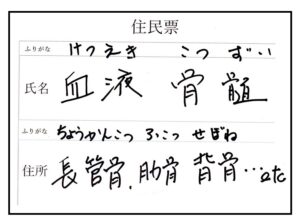 住民票
ふりがな けつえき こつ ずい
氏名 血液 骨髄
ふりがな ちょうかんこつ ろっこつ せぼね
住所 長管骨、肋骨 背骨…etc